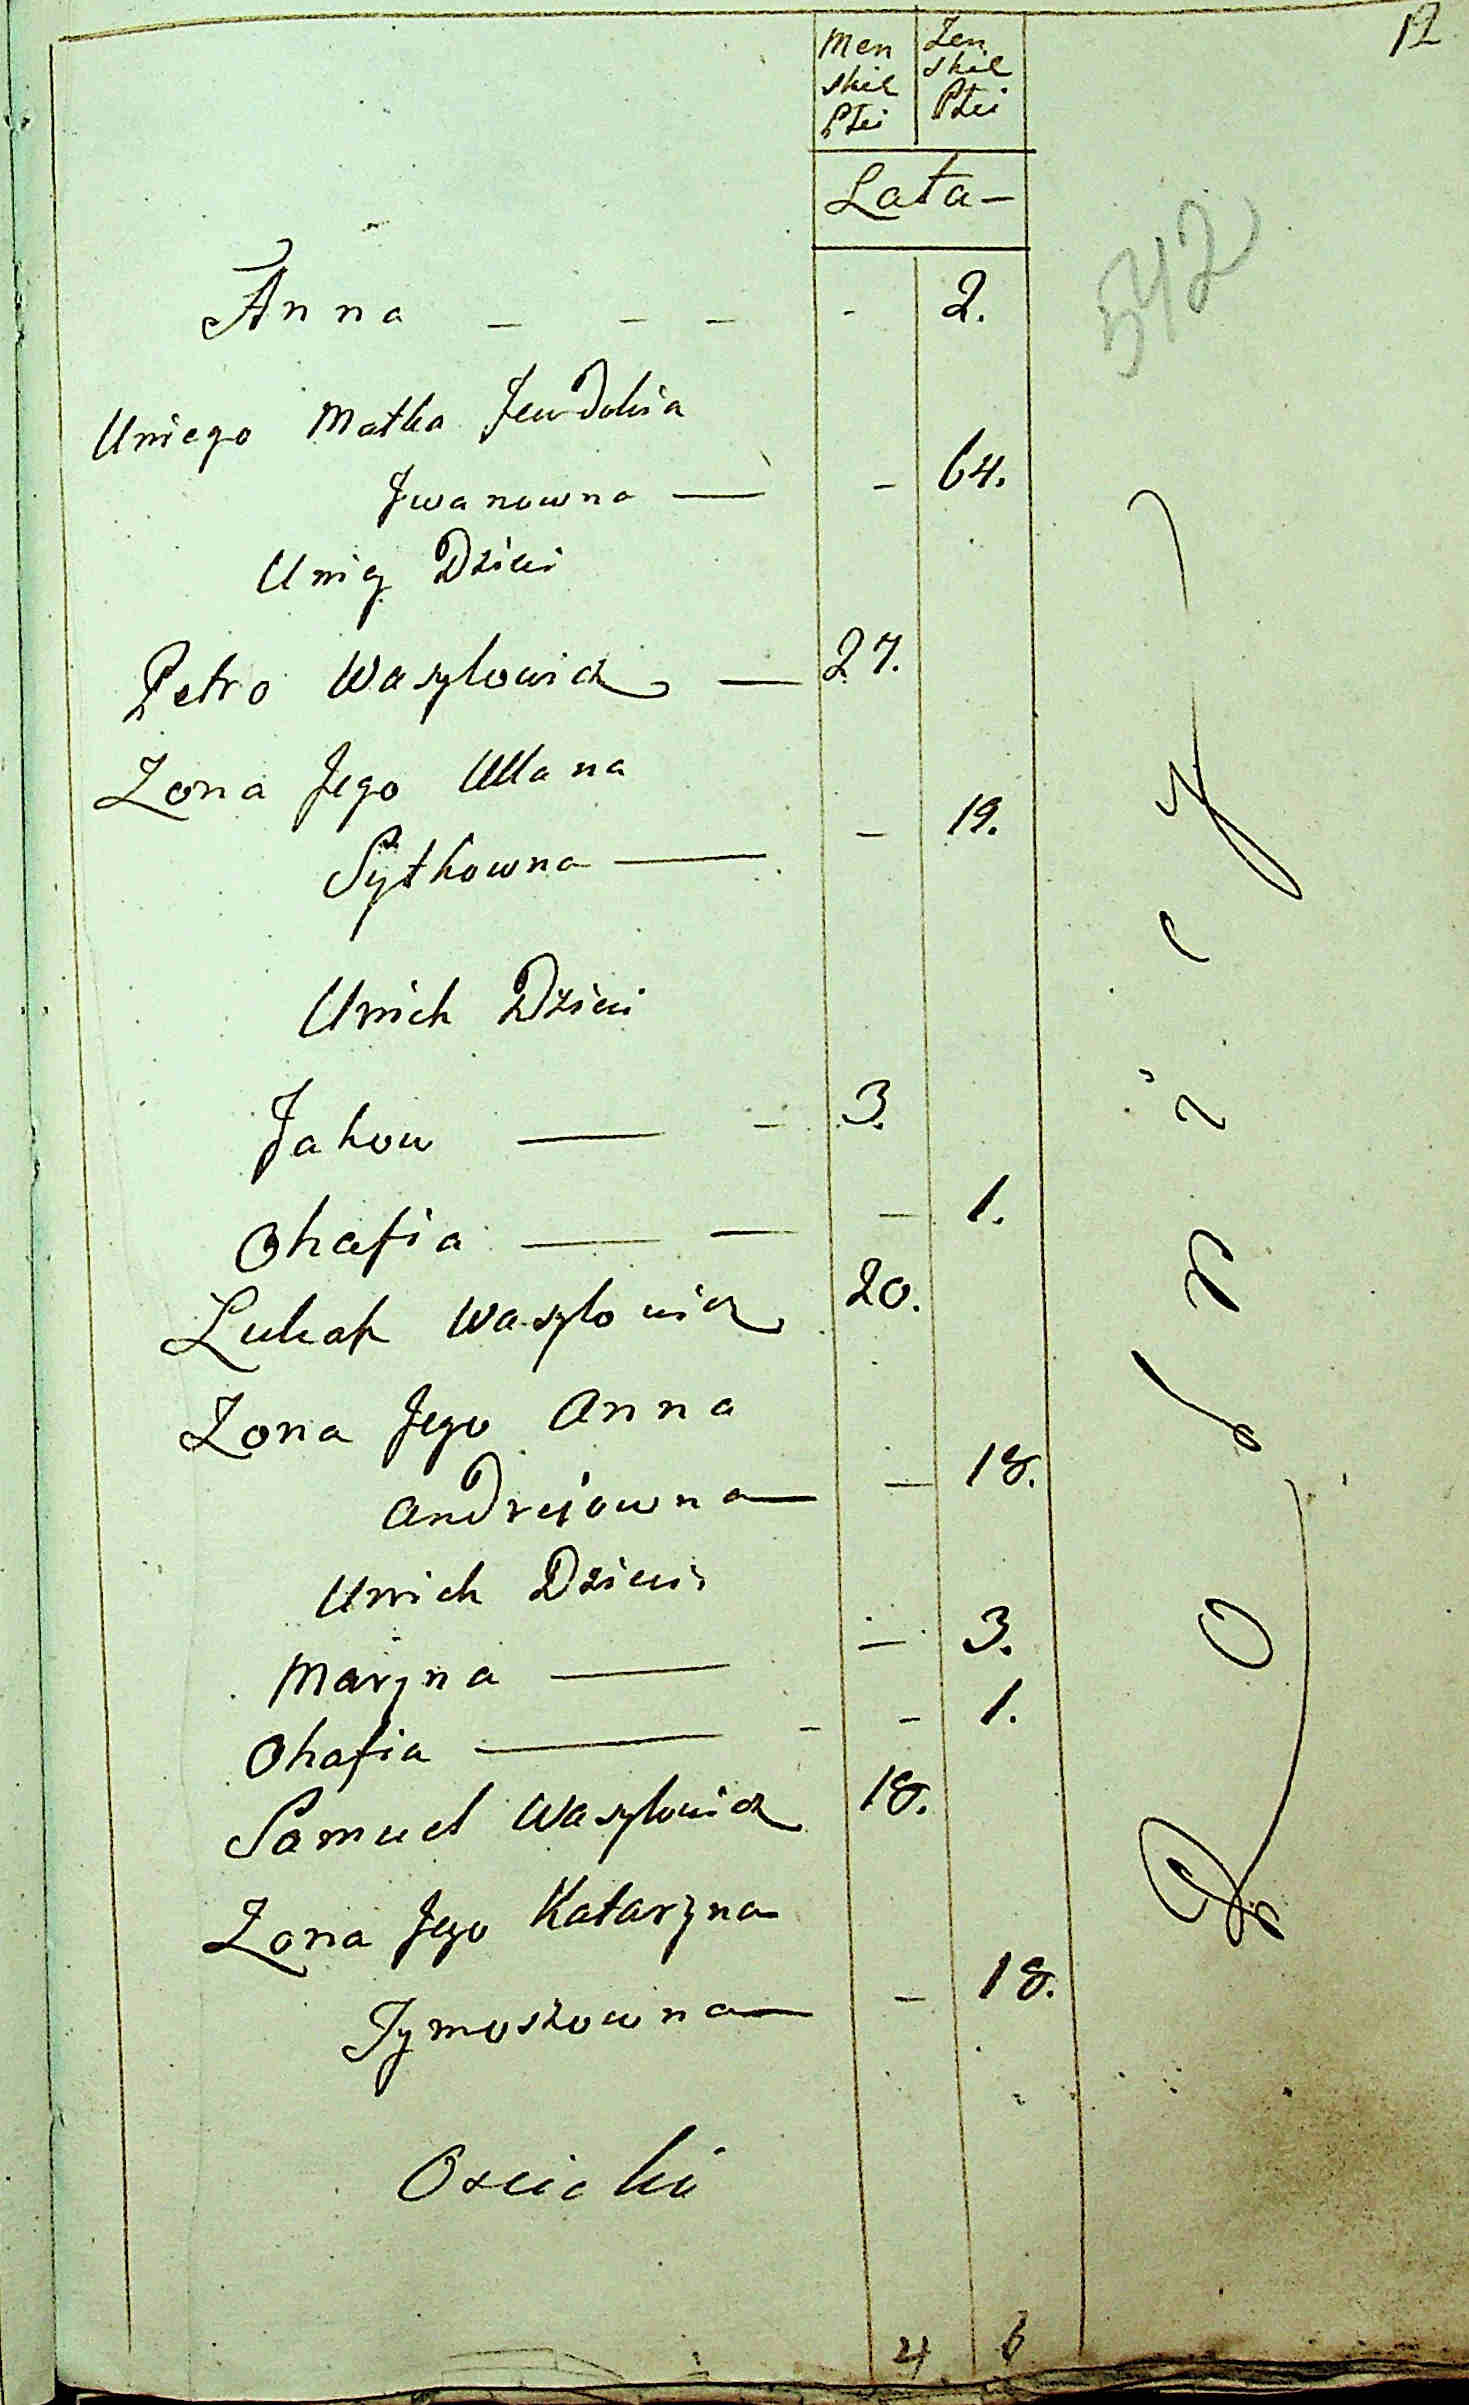 12
Men Zen
skie skie
Płci Płci
Lata -
542
Anna - - - - 2.
Uniego Matka Jewdokia
Jwanowna — - 64.
Uniey Dzieci
Petro Wasylowicz — 27.
Zona Jego Ullana
Sytkowna — - 19.
Unich Dzieci
Jakow — - 3.
Ohafia — — - 1.
Lukasz Wasylowicz 20.
Zona Jego Anna
Andreiowna — - 18.
Unich Dzieci
Maryna — - 3.
Ohafia — - - 1.
Samuel Wasylowicz 18.
Zona Jego Katarzyna
Tymoszowna — - 18.
4 6